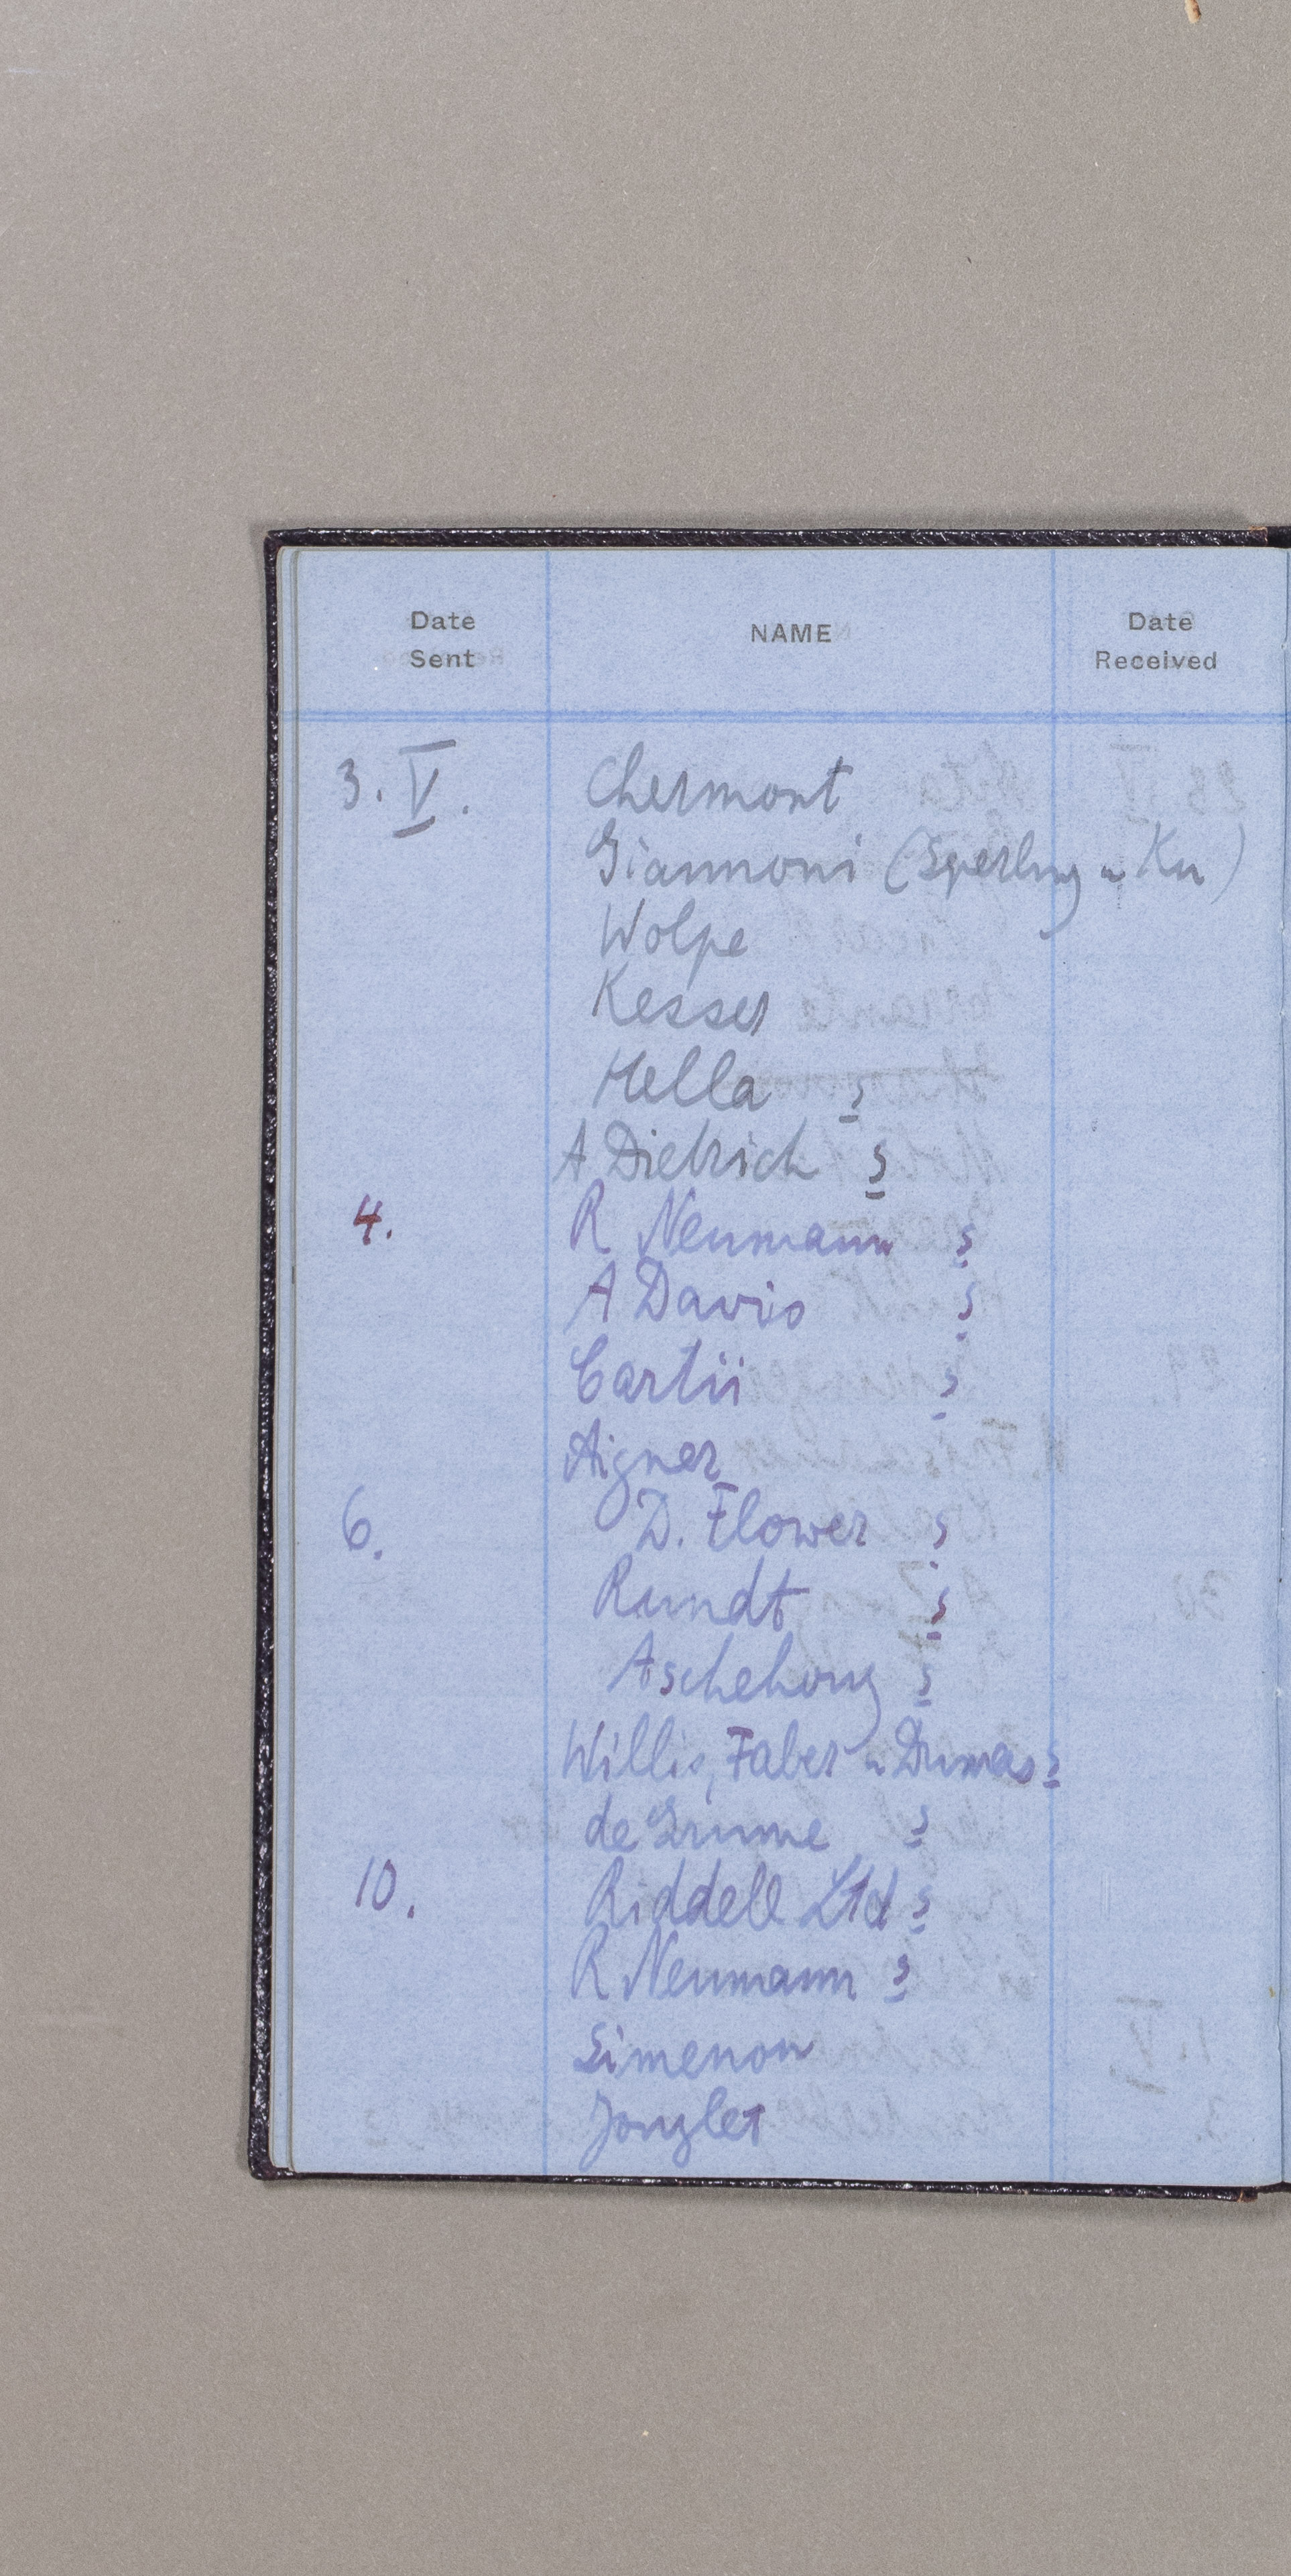 Date Sent NAME Date Received
3. V. Chermont
Giannoni (Sperling u Ku)
Wolpe
Kesser
Hella s
A Dietrich s
4. R Neumann s
A Davis s
Cartii s
Aigner
6. D. Flower s
Rundt s
Aschehoug s
Willis, Faber u Dumas s
de Grume s
10. Riddell Ltd s
R Neumann s
Simenon
Jonglet